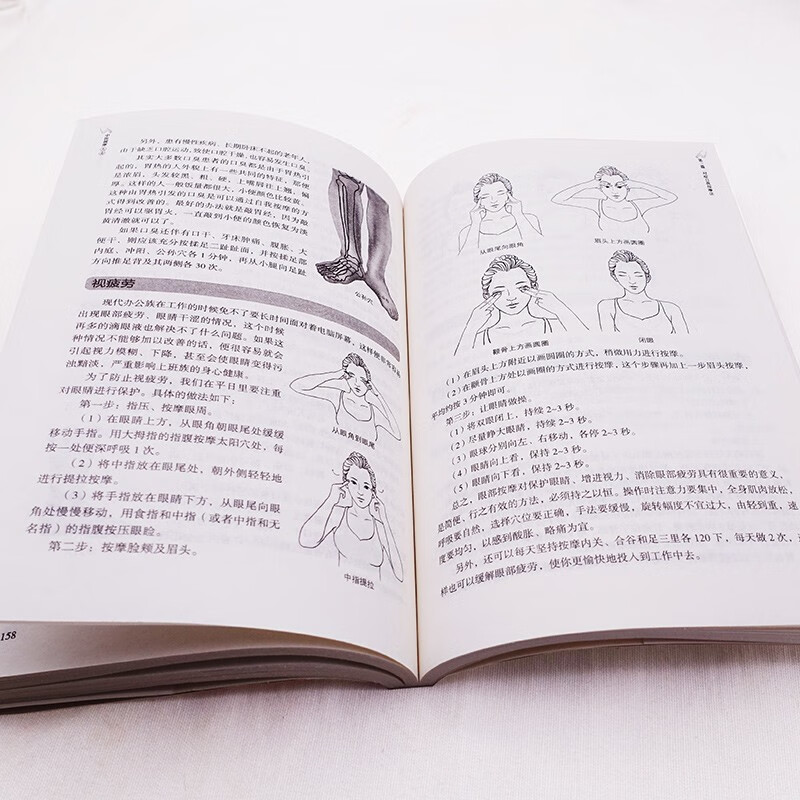 另外,患有慢性疾病、长期卧床不起的老年人,
由于缺乏口腔运动,致使口腔干燥,也容易发生口臭。
其实大多数口臭患者的口臭都是由于胃热引
起的,胃热的人外貌上有一些共同的特征,那便
是浓眉,头发较黑、粗、硬,上嘴唇往上翘,偏
厚。这样的人一般饭量都很大,小便颜色比较黄。
这种由胃热引发的口臭是可以通过自我按摩的方
式得到改善的。最好的办法就是敲胃经,因为敲
胃经可以驱胃火,一直敲到小便的颜色恢复为淡
黄清澈就可以了。
如果口臭还伴有口干、牙床肿痛、腹胀、大
便干,则应该充分按揉足二趾趾面,并按揉足部
内庭、冲阳、公孙穴各1分钟,再从小腿向足趾
方向推足背及其两侧各30次。
公孙穴
视疲劳
现代办公族在工作的时候免不了要长时间面对着电脑屏幕,这样便非常容易
出现眼部疲劳、眼睛干涩的情况,这个时候
再多的滴眼液也解决不了什么问题。如果这
种情况不能够加以改善的话,便很容易就会
引起视力模糊、下降,甚至会使眼睛变得污
浊黯淡,严重影响上班族的身心健康。
为了防止视疲劳,我们在平日里要注重
对眼睛进行保护。具体的做法如下:
第一步:指压、按摩眼周。
(1)在眼睛上方,从眼角朝眼尾处缓缓
移动手指。用大拇指的指腹按摩太阳穴处,每
按一处便深呼吸1次。
(2)将中指放在眼尾处,朝外侧轻轻地
进行提拉按摩。
(3)将手指放在眼睛下方,从眼尾向眼
角处慢慢移动,用食指和中指(或者中指和无
名指)的指腹按压眼睑。
第二步:按摩脸颊及眉头。
从眼角到眼尾
中指提拉
158
从眼尾向眼角
眉头上方画圆圈
颧骨上方画圆圈
闭眼
(1)在眉头上方附近以画圆圈的方式,稍做用力进行按摩。
(2)在颧骨上方处以画圈的方式进行按摩,这个步骤再加上一步眉头按摩,
平均约按3分钟即可。
第三步:让眼睛做操。
(1)将双眼闭上,持续2~3秒。
(2)尽量睁大眼睛,持续2~3秒。
(3)眼球分别向左、右移动,各停2~3秒。
(4)眼睛向上看,保持2~3秒。
(5)眼睛向下看,保持2~3秒。
总之,眼部按摩对保护眼睛、增进视力、消除眼部疲劳具有很重要的意义,
是简便、行之有效的方法,必须持之以恒。操作时注意力要集中,全身肌肉放松,
呼吸要自然,选择穴位要正确,手法要缓慢,旋转幅度不宜过大,由轻到重,速
度要均匀,以感到酸胀、略痛为宜。
另外,还可以每天坚持按摩内关、合谷和足三里各120下,每天做2次,
样也可以缓解眼部疲劳,使你更愉快地投入到工作中去。